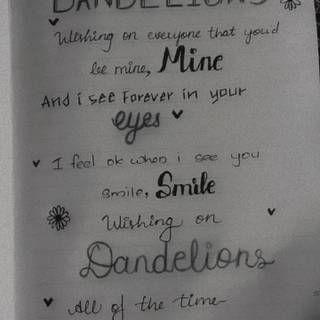 DANDELIONS
Wishing on everyone that you'd
be mine, Mine
And i see Forever in your
eyes
I feel ok when i see you
smile, Smile
Wishing on
Dandelions
All of the time-